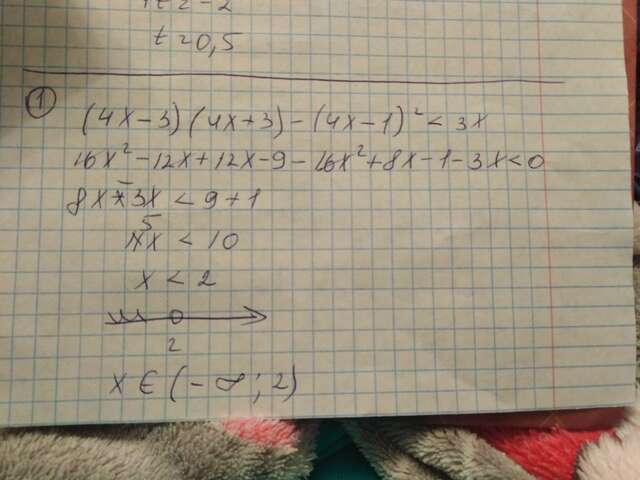 t = -2
t = 0,5
①
(4x-3)(4x+3)-(4x-1)² < 3x
16x²-12x+12x-9-16x²+8x-1-3x<0
8x-3x < 9+1
5x < 10
x < 2
2
x ∈ (-∞; 2)